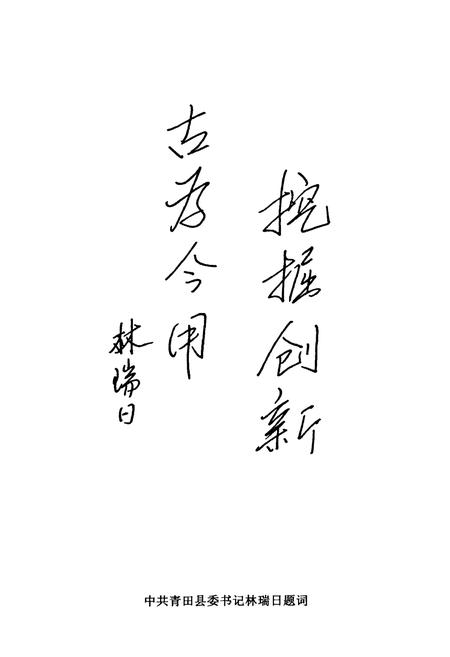 挖掘创新
古为今用
林瑞日
中共青田县委书记林瑞日题词